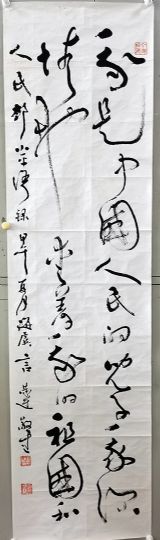 我是中国人民的儿子我深
情地爱着我的祖国和
人民 邓小平语录